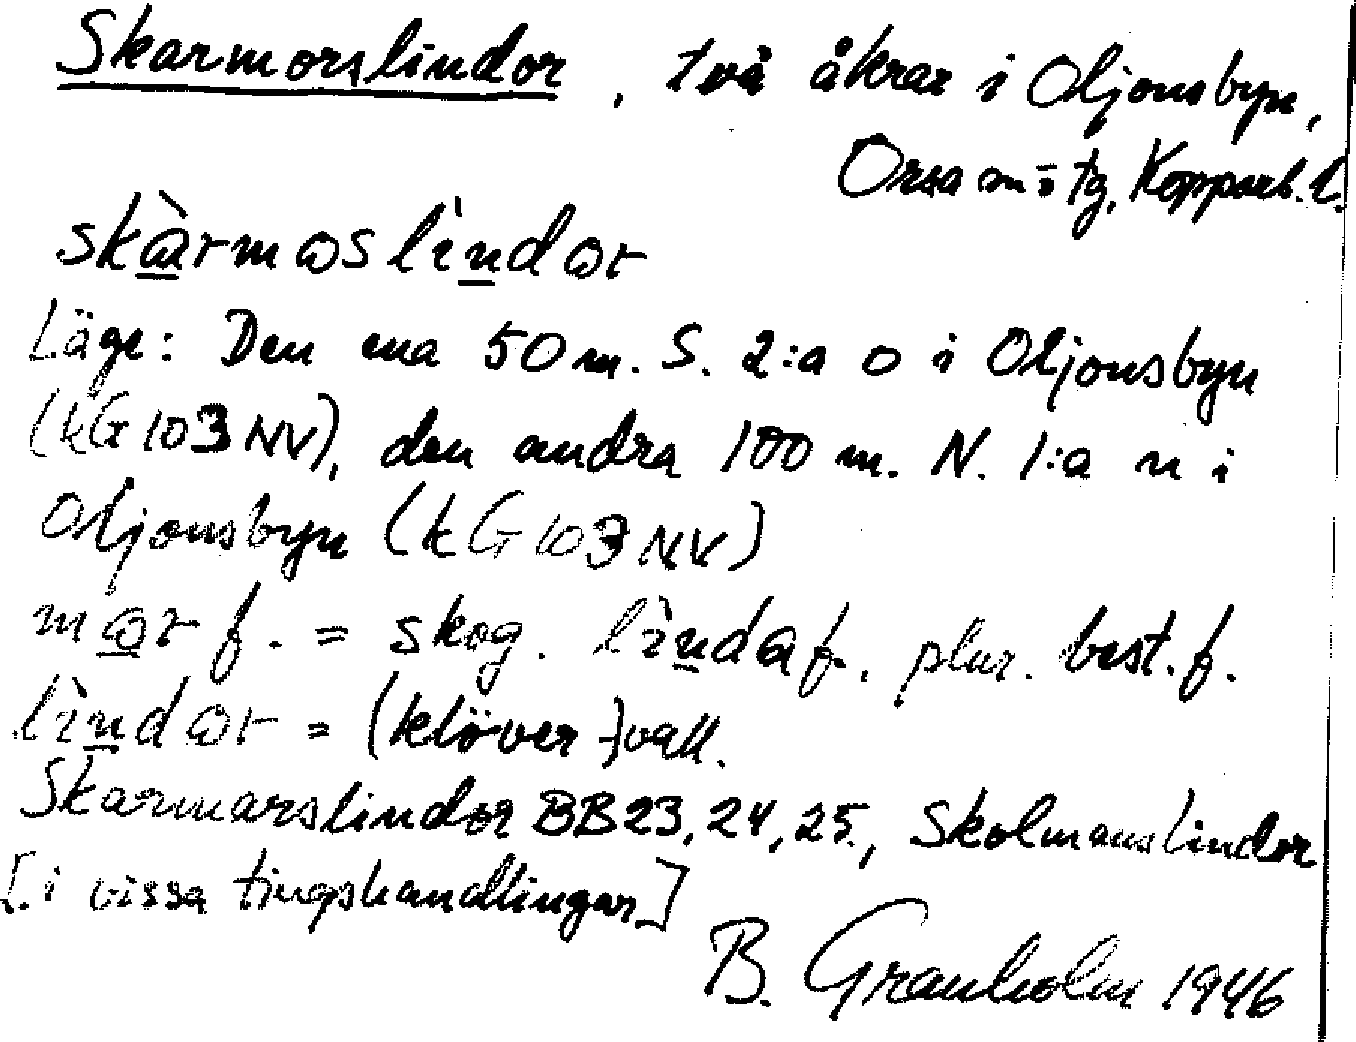 Skarmorslindor, två åkrar i Oljonsbyn,
Orsa sn o tg, Kopparb. l.
skàrmɷslìndɷr
Läge: Den ena 50 m. S. 2:a o i Oljonsbyn
(kG 103 NV), den andra 100 m. N. 1:a n i
Oljonsbyn (kG 103 NV)
mɷr f. = skog. lìnda f., plur. best. f.
lìndɷr = (klöver-)vall.
Skarmarslindor BB 23, 24, 25, Skolmanslindor
[i vissa tingshandlingar]
B. Granholm 1946